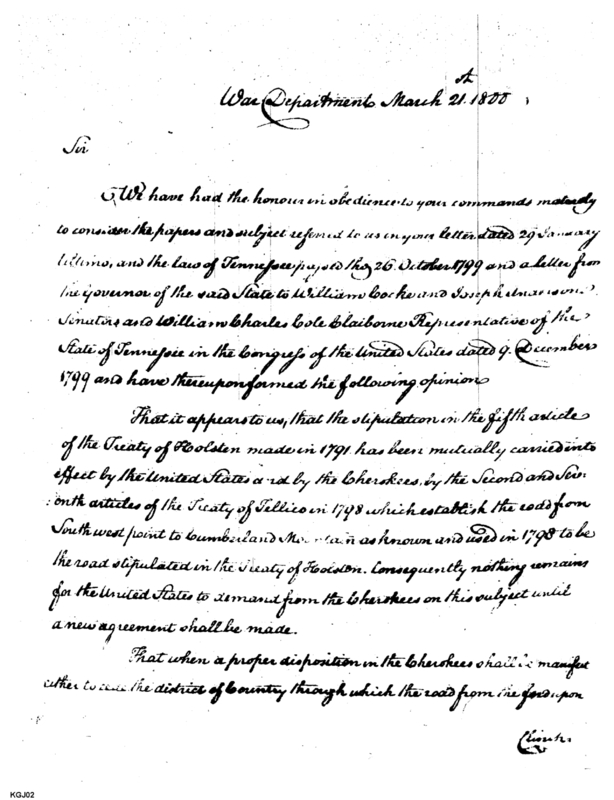 War Department March 21.st 1800
Sir
We have had the honour in obedience to your commands maturely
to consider the papers and subject referred to us in your letter dated 29 January
ultimo, and the law of Tennessee passed the 26 October 1799 and a letter from
the Governor of the said State to William Cocke and Joseph Anderson
Senators and William Charles Cole Claiborne Representative of the
State of Tennessee in the Congress of the United States dated 9. December
1799 and have thereupon formed the following opinion
That it appears to us, that the stipulation in the fifth article
of the Treaty of Holsten made in 1791 has been mutually carried into
effect by the United States and by the Cherokees, by the Second and Sev-
:enth articles of the Treaty of Tellico in 1798 which establish the road from
South west point to Cumberland Mountain as known and used in 1798 to be
the road stipulated in the Treaty of Holsten. Consequently nothing remains
for the United States to demand from the Cherokees on this subject until
a new agreement shall be made.
That when a proper disposition in the Cherokees shall be manifest
either to cede the district of Country through which the road from the ford upon
Clinch
KGJ02